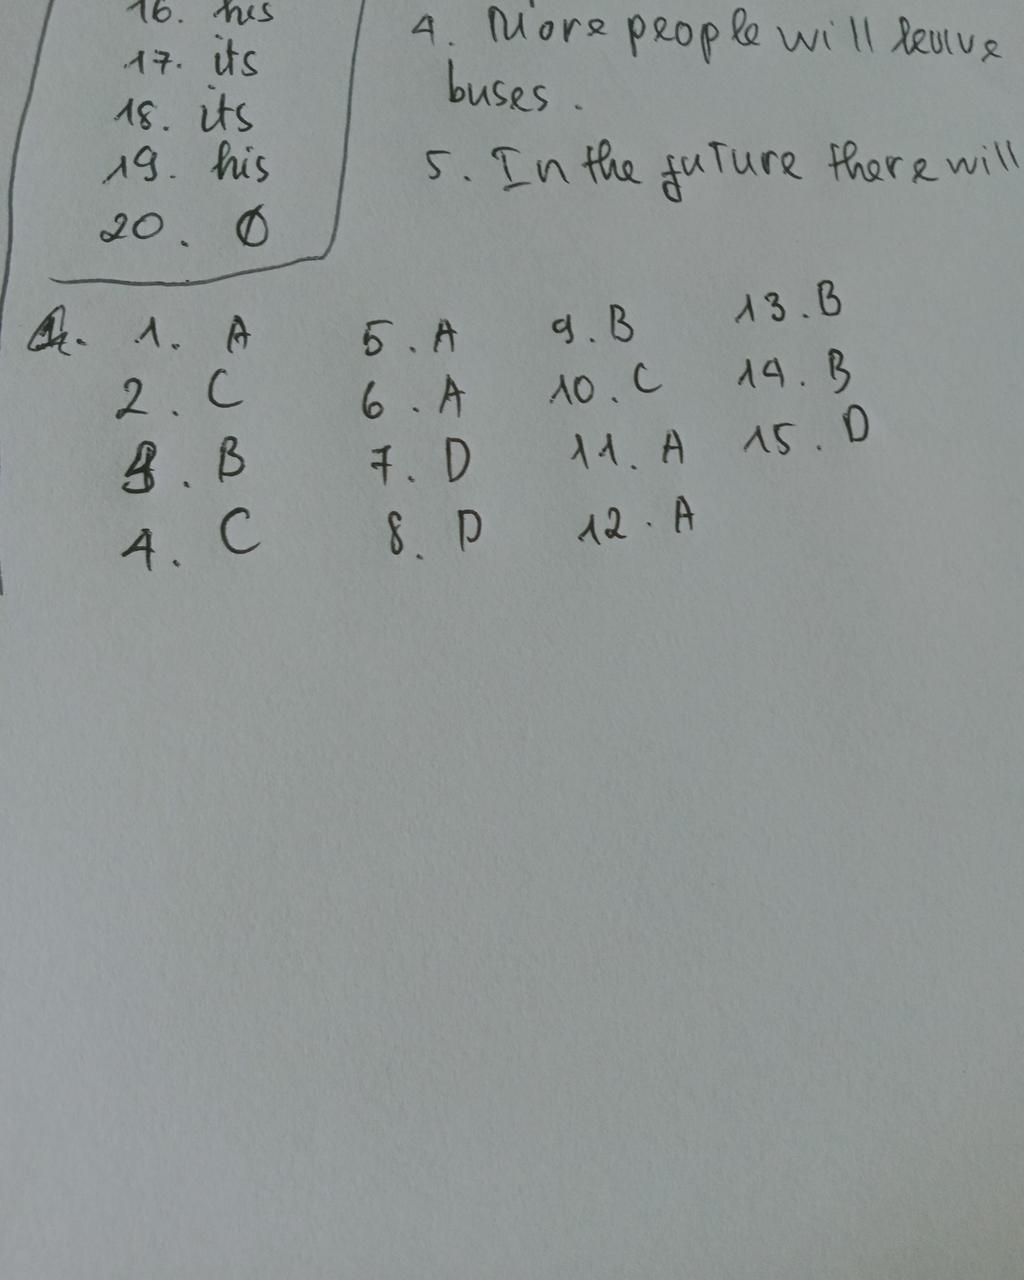 16. his
17. its
18. its
19. his
20. Ø
4. More people will leave
buses.
5. In the future there will
1. A 5. A 9. B 13. B
2. C 6. A 10. C 14. B
3. B 7. D 11. A 15. D
4. C 8. D 12. A